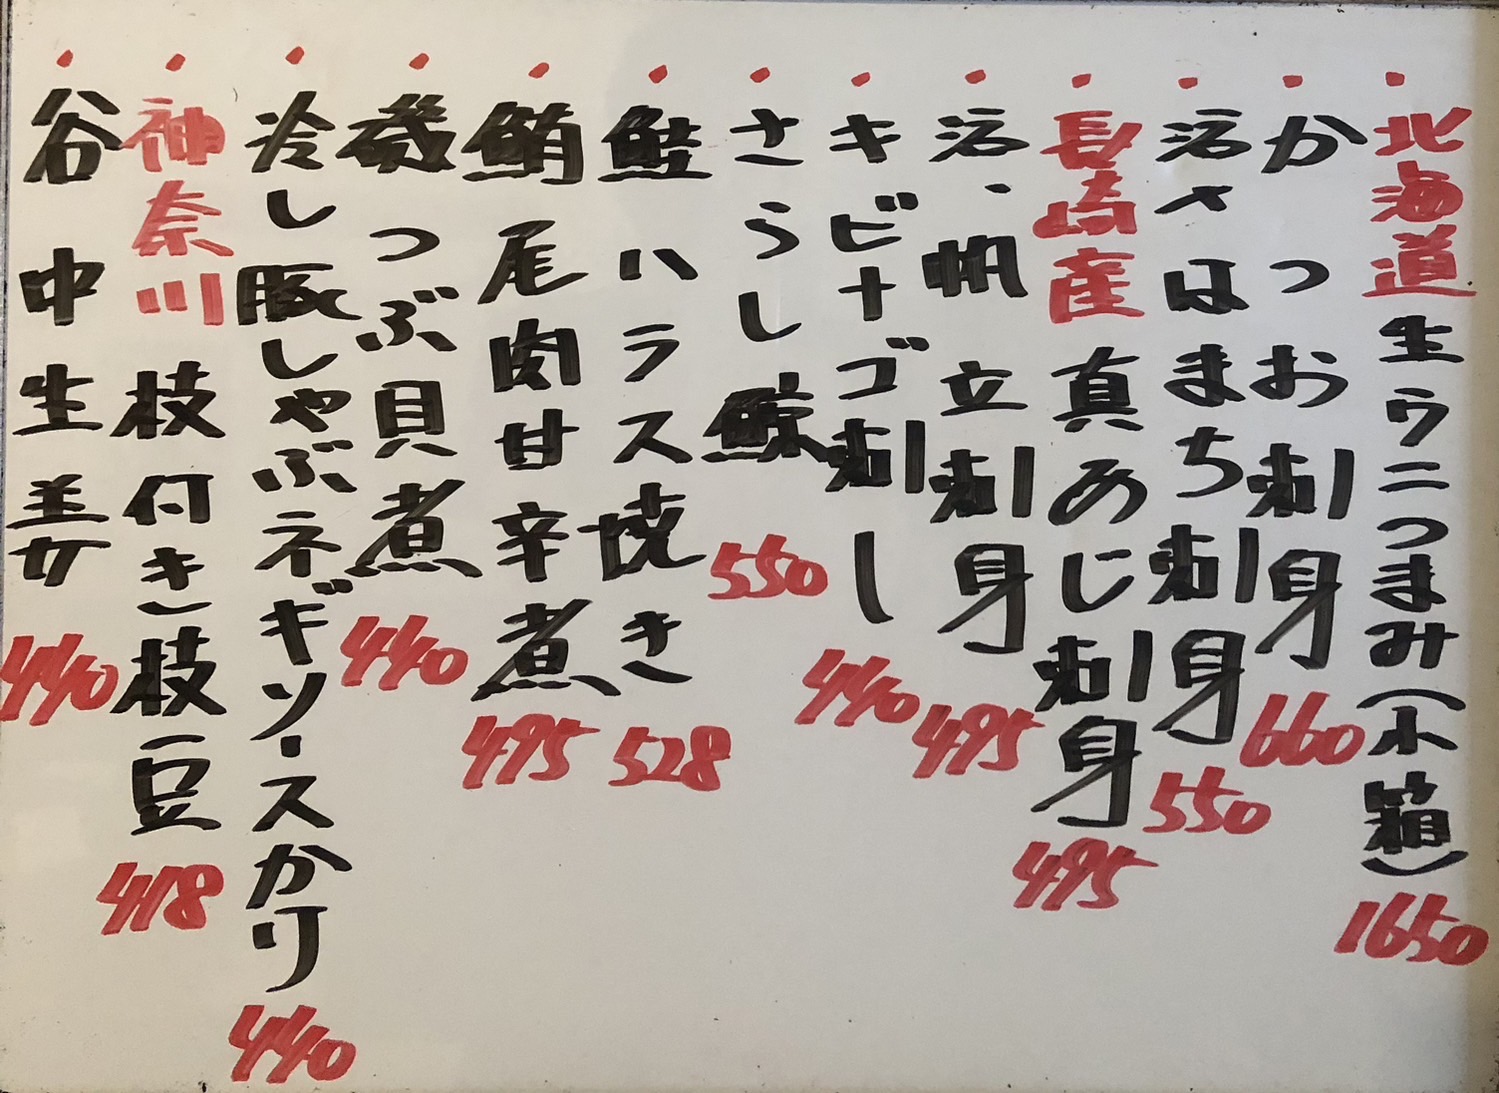 ・北海道生ウニつまみ(小箱)1650
・かつお刺身660
・活〆はまち刺身550
・長崎産真あじ刺身495
・活、帆立刺身495
・キビナゴ刺し440
・さらし鯨550
・鮭ハラス焼き528
・鮪尾肉甘辛煮495
・磯つぶ貝煮440
・冷し豚しゃぶネギソースかり440
・神奈川枝付き枝豆418
・谷中生姜440